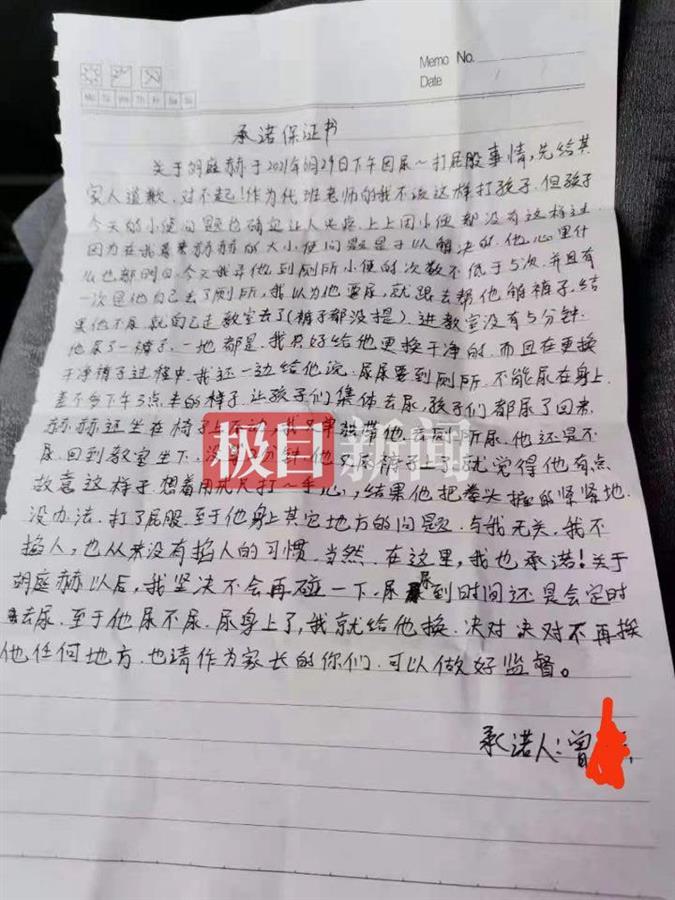 Memo No.
Date
Mo Tu We Th Fr Sa Su
承诺保证书
关于胡庭赫于2021年月29日下午因尿~打屁股事情,先给其
家人道歉.对不起!作为代班老师的我不该这样打孩子.但孩子
今天的小便问题也确实让人头疼.上上周小便都没有这样过.
因为在我看来赫赫的大小便问题是可以解决的.他心里什
么也都明白.今天我寻他到厕所小便的次数不低于5次.并且有
一次是他自己去了厕所,我以为他要尿,就跟去帮他脱裤子.结
果他不尿就自己走教室去了(裤子都没提).进教室没有5分钟.
他尿了一裤子.一地都是.我只好给他更换干净的.而且在更换
干净裤子过程中.我还一边给他说.尿尿要到厕所.不能尿在身上.
差不多下午3点半的样子.让孩子们集体去尿.孩子们都尿了回来.
赫赫还坐在椅子上不动,我单独带他去厕所尿.他还是不
尿.回到教室坐下.没分钟.他又尿裤子上了.就觉得他有点
故意这样子.想着用戒尺打~手心,结果他把拳头握的紧紧地.
没办法.打了屁股.至于他身上其它地方的问题.与我无关.我不
掐人,也从来没有掐人的习惯.当然.在这里,我也承诺!关于
胡庭赫以后,我坚决不会再碰一下.尿尿到时间还是会定时
去尿.至于他尿不尿.尿身上了,我就给他换.决对决对不再挨
他任何地方.也请作为家长的你们.可以做好监督。
承诺人:曾
极目新闻